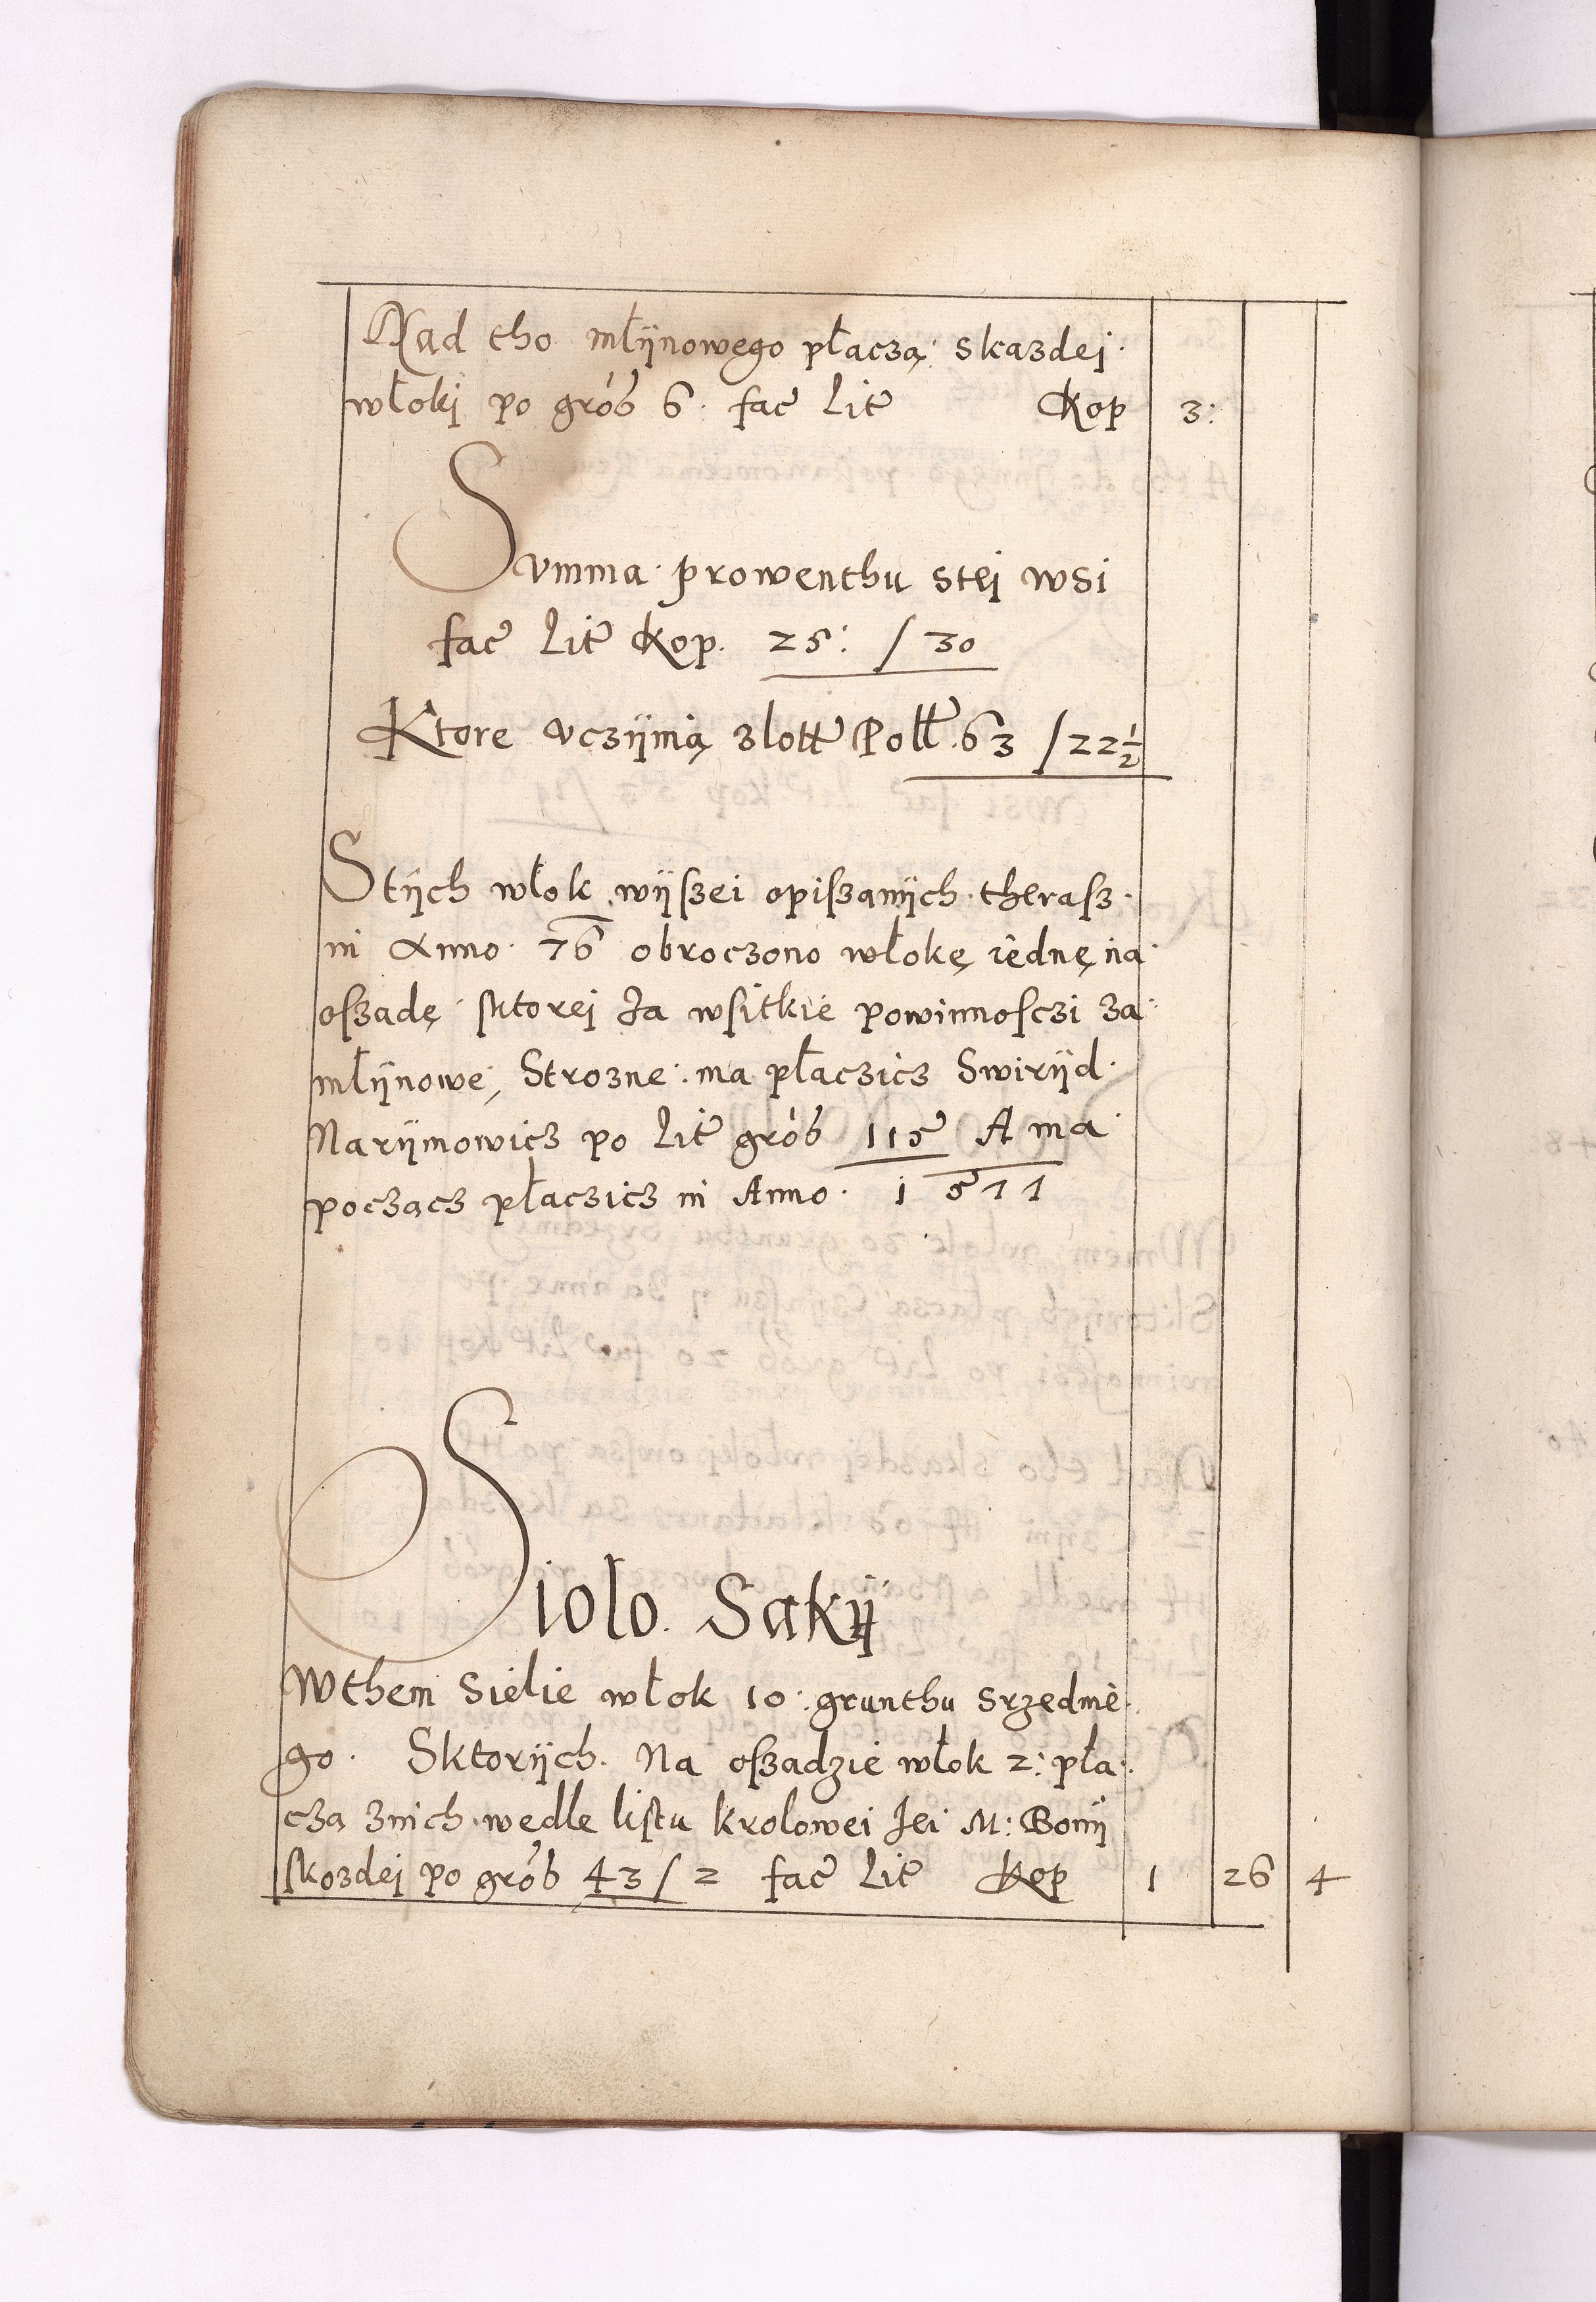 Nad tho młÿnowego płaczą: skazdej
włokj po grosz 6 facē Litē Kop 3:
Summa prowenthu stej wsi
facē Litē Kop. 25: / 30
Ktore vczÿnią zlott Poll 63 / 22 1/2
Stÿch włok wÿszei opiszanÿch therasz
in Anno 76 obroczono włokę iednę na
oszadę sktorej Za wsitkie powinnosczi za
młÿnowe, Strozne ma płaczicz Swirÿd
Narÿmowicz po Litē grosz 115 A ma
poczacz płaczicz in Anno 1577
Sioło Sakÿ
Wthem Sielie włok 10: grunthu srzednie
go. Sktorÿch. Na oszadzie włok 2: pła
czą znich wedle listu krolowei Jei M: Bonÿ
skozdej po grosz 43 / 2 facē Litē Kop 1 26 4